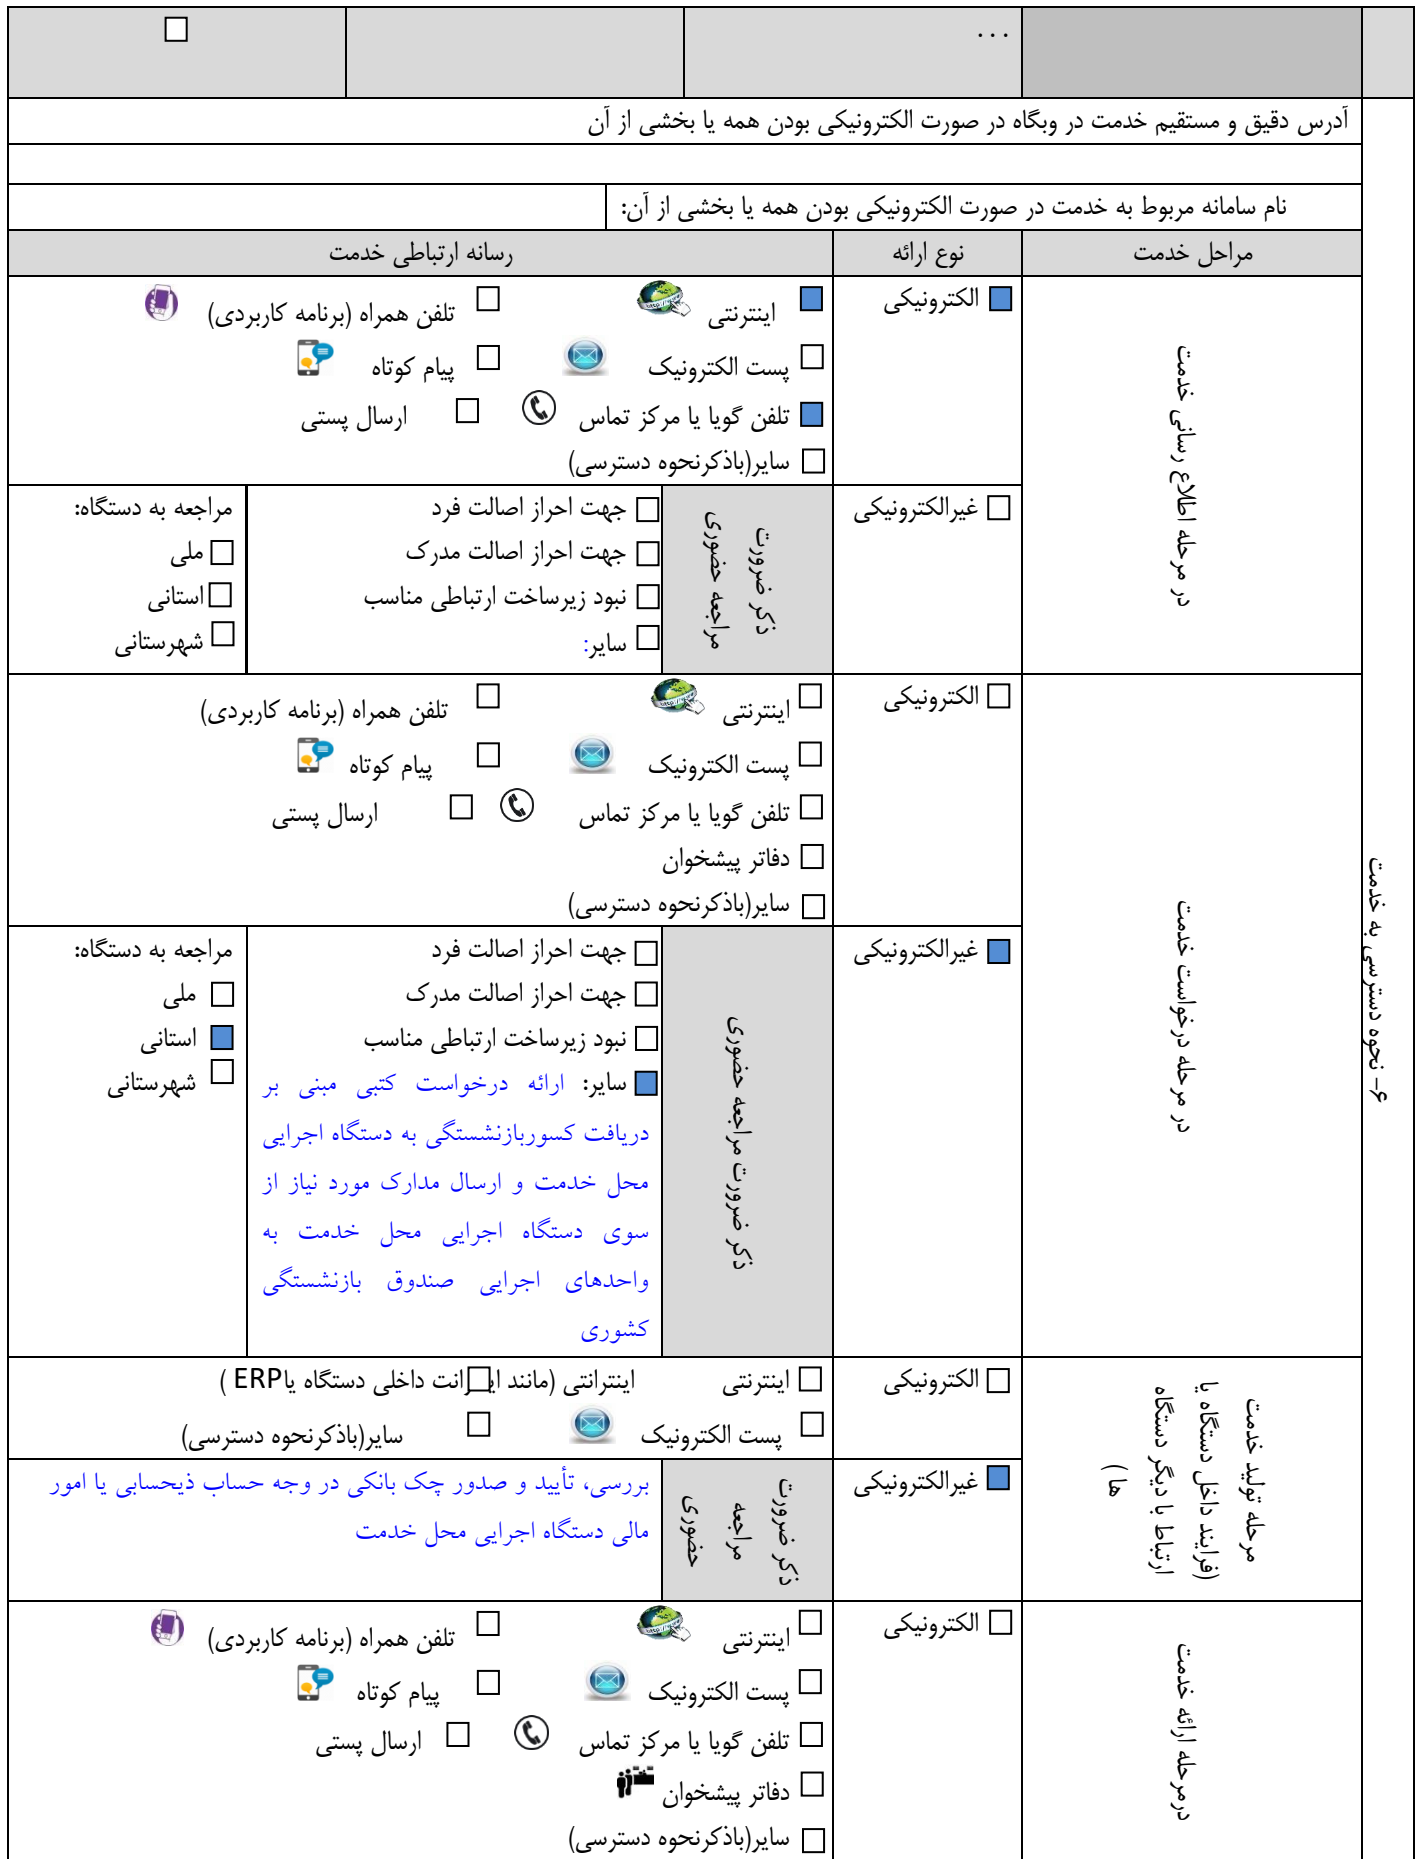 ...
آدرس دقیق و مستقیم خدمت در وبگاه در صورت الکترونیکی بودن همه یا بخشی از آن
نام سامانه مربوط به خدمت در صورت الکترونیکی بودن همه یا بخشی از آن:
مراحل خدمت نوع ارائه رسانه ارتباطی خدمت
۶- نحوه دسترسی به خدمت
در مرحله اطلاع رسانی خدمت
الکترونیکی
اینترنتی تلفن همراه (برنامه کاربردی)
پست الکترونیک پیام کوتاه
تلفن گویا یا مرکز تماس ارسال پستی
سایر(باذکرنحوه دسترسی)
غیرالکترونیکی
ذکر ضرورت
مراجعه حضوری
جهت احراز اصالت فرد
جهت احراز اصالت مدرک
نبود زیرساخت ارتباطی مناسب
سایر:
مراجعه به دستگاه:
ملی
استانی
شهرستانی
در مرحله درخواست خدمت
الکترونیکی
اینترنتی تلفن همراه (برنامه کاربردی)
پست الکترونیک پیام کوتاه
تلفن گویا یا مرکز تماس ارسال پستی
دفاتر پیشخوان
سایر(باذکرنحوه دسترسی)
غیرالکترونیکی
ذکر ضرورت مراجعه حضوری
جهت احراز اصالت فرد
جهت احراز اصالت مدرک
نبود زیرساخت ارتباطی مناسب
سایر: ارائه درخواست کتبی مبنی بر
دریافت کسوربازنشستگی به دستگاه اجرایی
محل خدمت و ارسال مدارک مورد نیاز از
سوی دستگاه اجرایی محل خدمت به
واحدهای اجرایی صندوق بازنشستگی
کشوری
مراجعه به دستگاه:
ملی
استانی
شهرستانی
مرحله تولید خدمت
(فرایند داخل دستگاه یا
ارتباط با دیگر دستگاه
ها )
الکترونیکی
اینترنتی اینترانتی (مانند اینترانت داخلی دستگاه یاERP )
پست الکترونیک سایر(باذکرنحوه دسترسی)
غیرالکترونیکی
ذکر ضرورت
مراجعه
حضوری
بررسی، تأیید و صدور چک بانکی در وجه حساب ذیحسابی یا امور
مالی دستگاه اجرایی محل خدمت
درمرحله ارائه خدمت
الکترونیکی
اینترنتی تلفن همراه (برنامه کاربردی)
پست الکترونیک پیام کوتاه
تلفن گویا یا مرکز تماس ارسال پستی
دفاتر پیشخوان
سایر(باذکرنحوه دسترسی)